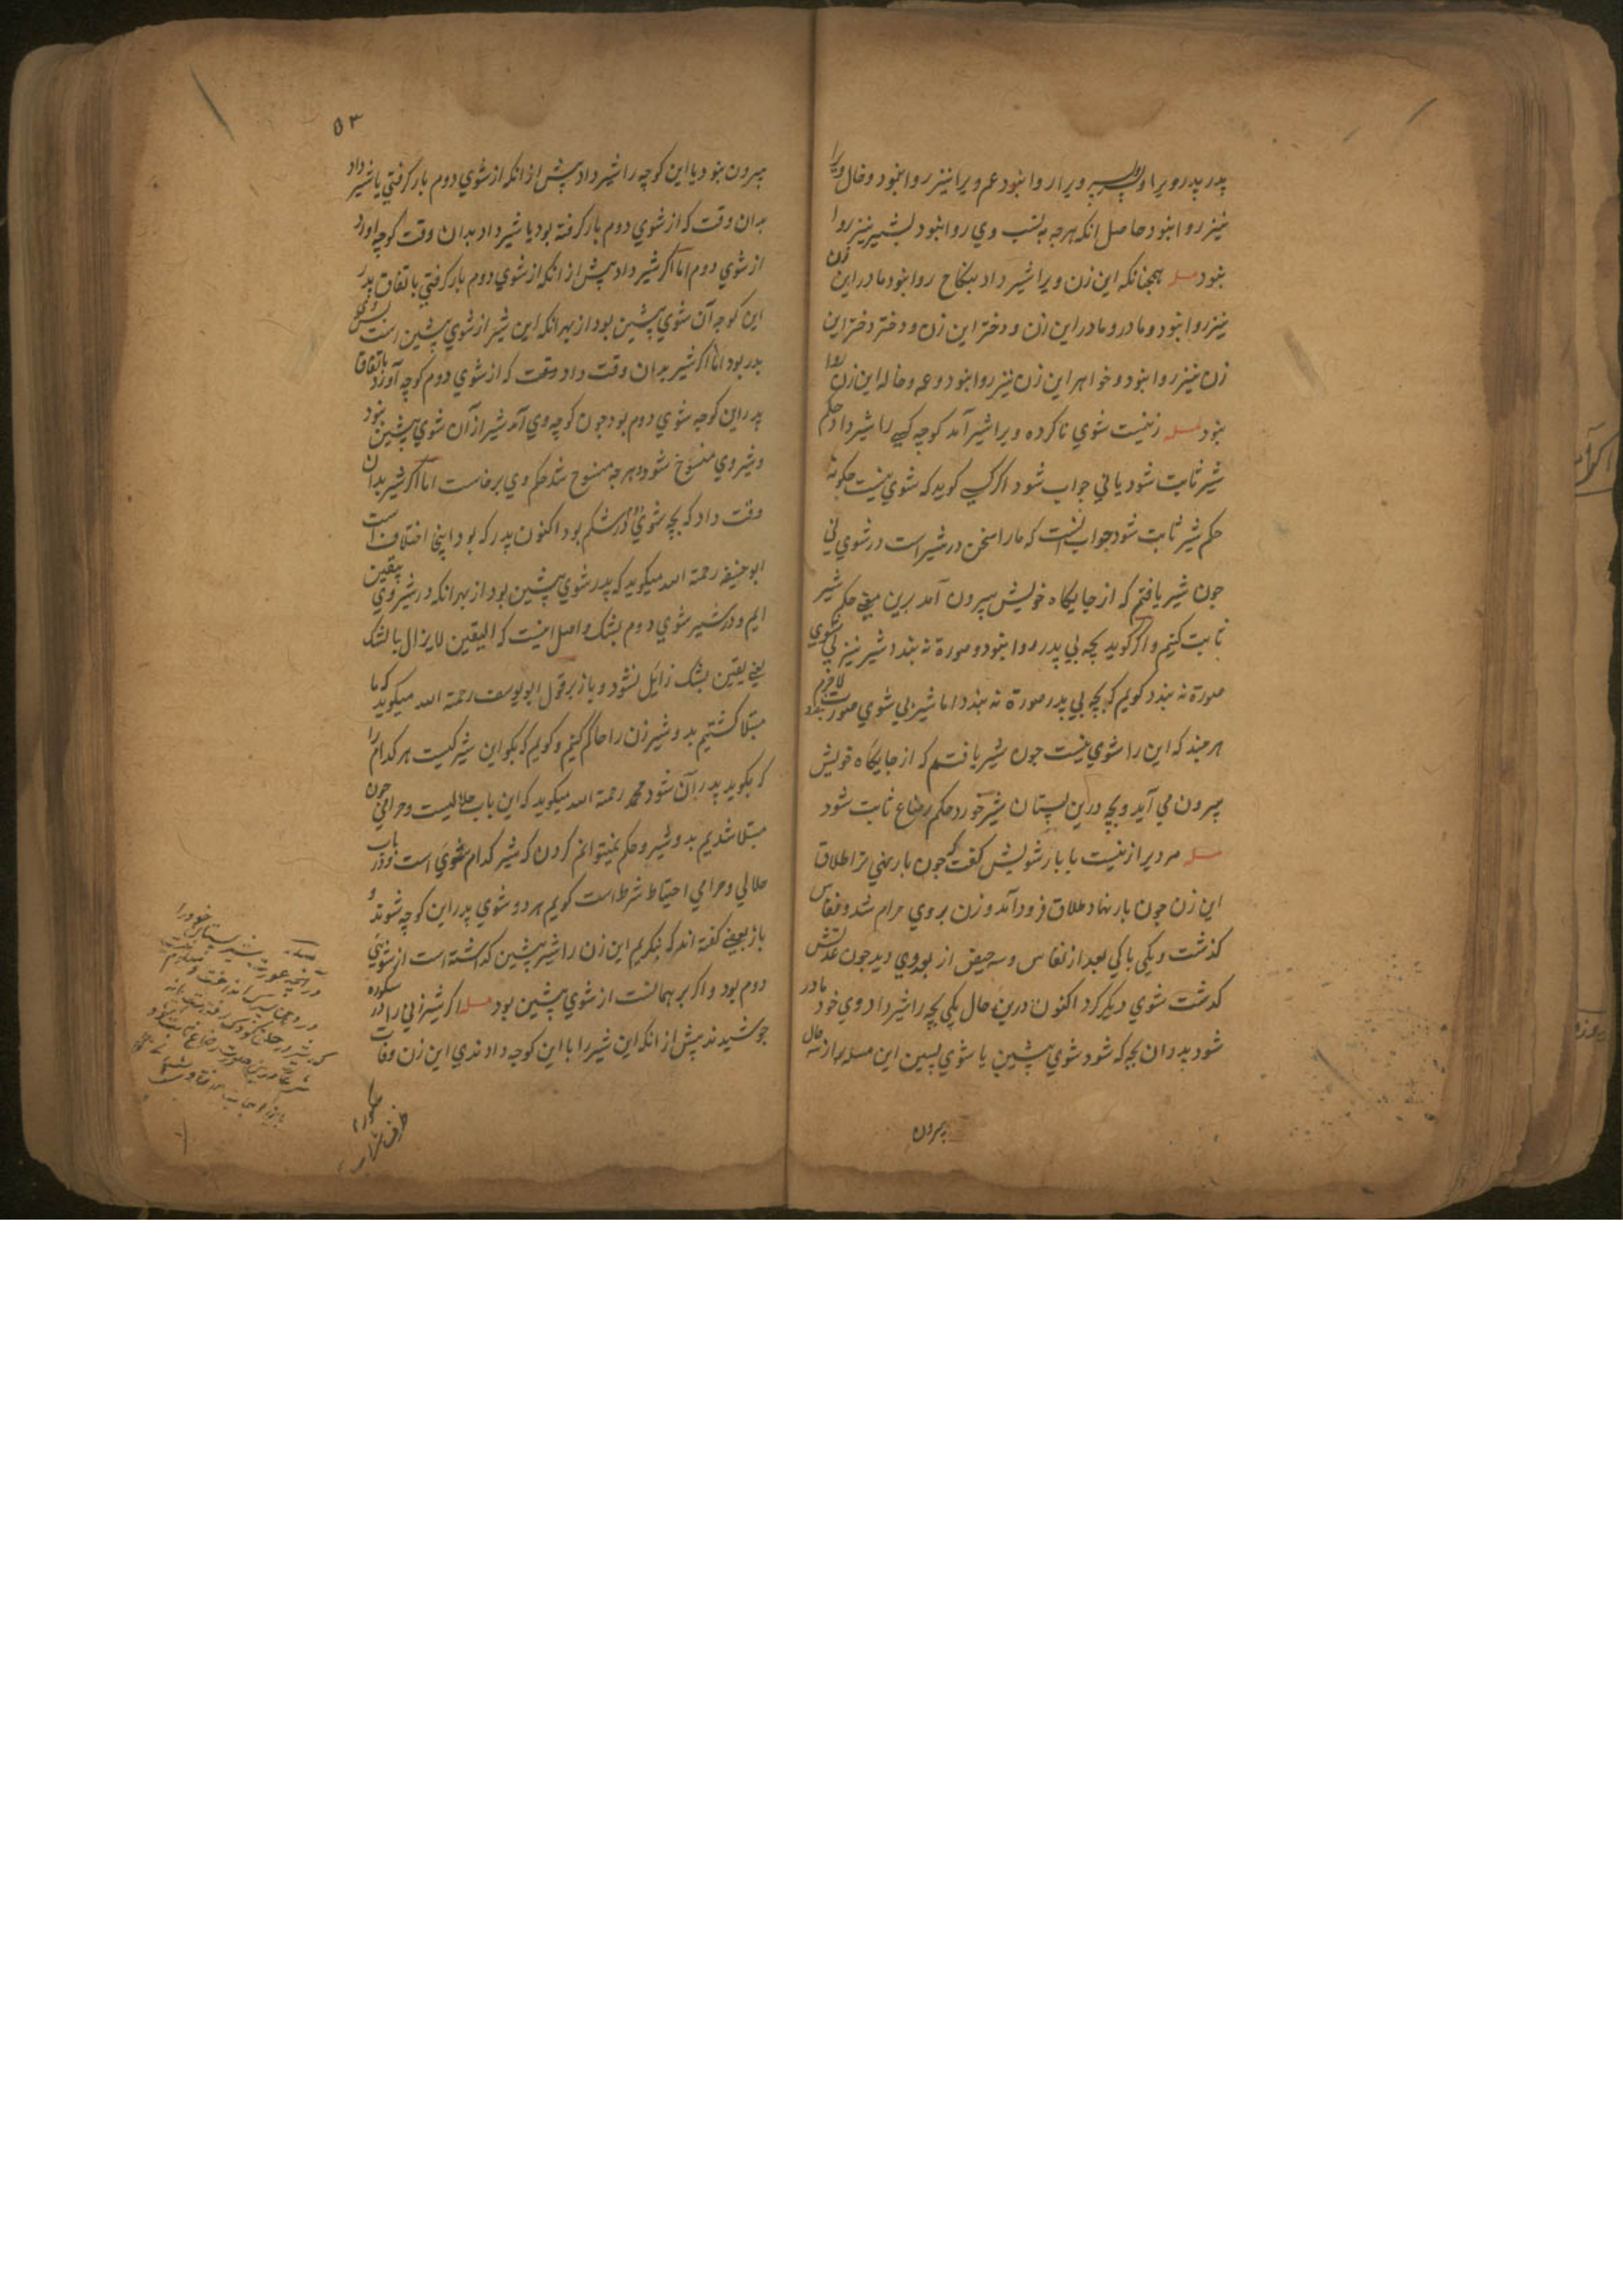 پدر پدر ویرا و پسر ویرا روا نبود عم ویرا نیز روا نبود و خال ویرا
نیز روا نبود حاصل انکه هرچه به نسب وي روا نبود بشیر نیز روا
نبود مسله همچنانکه این زن ویرا شیر داد بنکاح روا نبود مادر این زن
نیز روا نبود و مادر و مادر این زن و دختر این زن و دختر دختر این
زن نیز روا نبود و خواهر این زن نیز روا نبود و عمه و خاله این زن روا
نبود مسله زنیست شوي ناکرده ویرا شیر آمد کوچه کسی را شیر داد حکم
شیر ثابت شود یا ني جواب شود اکر کسی کوید که شوي نیست چکونه
حکم شیر ثابت شود جواب انست که ما را سخن در شیر است در شوي ني
جون شیر یافتم که از جایکاه خویش بیرون آمد برین معنی حکم شیر
ثابت کنیم و اکر کوید بچه بي پدر روا نبود و صورة نه بندد شیر نیز بي شوي
صورة نه بندد کویم که بچه بي پدر صورة نه بندد اما شیر بي شوي صورت بندد لاجرم
هرچند که این را شوي نیست جون شیر یافتیم که از جایکاه خویش
بیرون مي آید و بچه درین پستان شیر خورد حکم رضاع ثابت شود
مسله مردیرا زنیست با بار شویش کفت که جون بار بنهي ترا طلاق
این زن جون بار نهاد طلاق فرود آمد و زن بر وي حرام شد و نفاس
کذشت و یکي پاکي بعد از نفاس و سه حیض از بعد وي دید جون عدتش
کذشت شوي دیکر کرد اکنون درین حال یکي بچه را شیر داد وي خود مادر
شود پدر ان بچه که شود شوي پیشین یا شوي پسین این مسله را از سه حال
بیرون
۵۳
بیرون نبود یا این کوچه را شیر داد پیش از انکه از شوي دوم بار کرفتي یا شیر داد
بدان وقت که از شوي دوم بار کرفته بود یا شیر داد بدان وقت کوچه آورد
از شوي دوم اما اکر شیر داد پیش از انکه از شوي دوم بار کرفتي باتفاق پدر
این کوچه آن شوي پیشین بود از بهر انکه این شیر از شوي پیشین است
پدر بود اما اکر شیر بدان وقت داد وقت که از شوي دوم کوچه آورد باتفاق
پدر این کوچه شوي دوم بود جون کوچه وي آمد شیر از آن شوي پیشین نبود
و شیر وي منسوخ شود و هرچه منسوخ شد حکم وي برخاست اما اکر شیر بدان
وقت داد که بچه شوي دوم در شکم بود اکنون پدر که بود اینجا اختلاف است
ابو حنیفه رحمة الله میکوید که پدر شوي پیشین بود از بهر انکه در شیر وي بیقین
ایم و در شیر شوي دوم بشک و اصل اینست که الیقین لا یزال بالشک
یعنی یقین بشک زایل نشود و باز بر قول ابو یوسف رحمة الله میکوید که ما
مبتلا کشتیم بدو شیر زن را حاکم کنیم و کویم که بکو این شیر کیست هر کدام را
که بکوید پدر آن شود محمد رحمة الله میکوید که این باب حلالیست و حرامي جون
مبتلا شدیم بدو شیر و حکم نمیتوانم کردن که شیر کدام شوي است و در باب
حلالي و حرامي احتیاط شرط است کویم هر دو شوي پدر این کوچه شوند و
باز بعضی کفته اند که بنکریم این زن را شیر پیشین کداشته است از شوي
دوم بود و اکر بر همانست از شوي پیشین بود مسله اکر شیر زني را در سکوره
جوشیدند پیش از انکه این شیر را با این کوچه دادندي این زن وفات